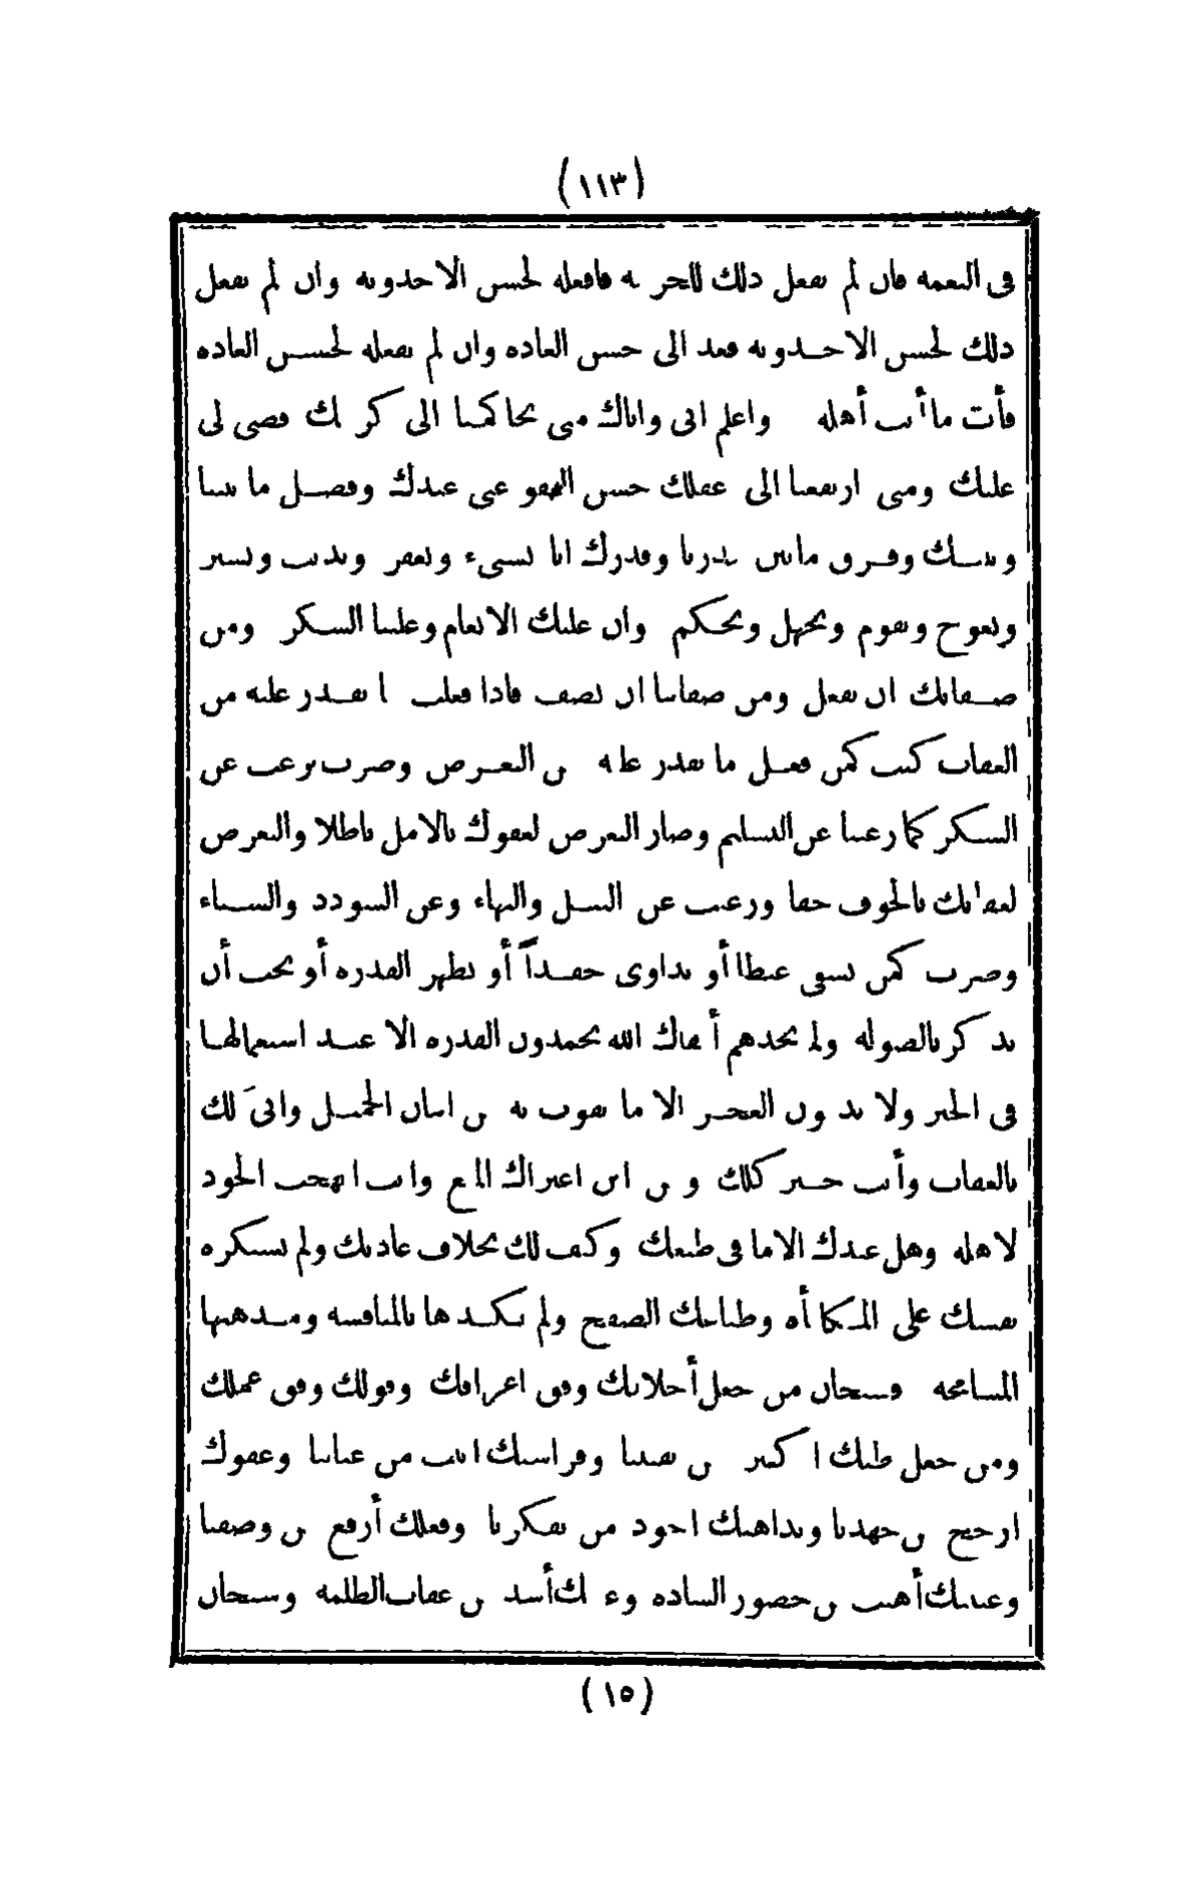 (١١٣)
في النعمة فان لم تفعل ذلك للحرية فافعله لحسن الاحدوثة وان لم تفعل
ذلك لحسن الاحدوثة فعد الى حسن العادة وان لم تفعله لحسن العادة
فأت ما أنت أهله واعلم انى واياك متى تحاكمنا الى كرمك قضى لى
عليك ومتى ارتفعنا الى عقلك حسن العفو عنى عندك وفصل ما بيننا
وبينك وفرق ما بين قدرنا وقدرك انا نسىء وتغفر ونذنب وتستر
ونعوج وتقوم ونجهل وتحكم وان عليك الانعام وعلينا الشكر ومن
صفاتك ان تفعل ومن صفاتنا ان نصف فاذا فعلت ما تقدر عليه من
العقاب كنت كمن فعل ما يقدر عليه من التعرض وصرت ترغب عن
الشكر كما رغبنا عن التسليم وصار التعرض لعفوك بالامل باطلا والتعرض
لعقابك بالخوف حقا ورغبت عن النبل والبهاء وعن السودد والسناء
وصرت كمن يشفى غيظا أو يداوى حقداً أو يظهر القدرة أو يحب أن
يذكر بالصولة ولم نجدهم أبقاك الله يحمدون القدرة الا عند استعمالها
فى الخير ولا يذمون العجز الا لما يفوت به من اتيان الجميل وانى لك
بالعقاب وأنت خير كلك ومن اين اعتراك المنع وانت انهجت الجود
لاهله وهل عندك الا ما فى طبعك وكيف لك بخلاف عادتك ولم تستكره
نفسك على المكافأة وطباعك الصفح ولم تكدها بالمنافسة ومذهبها
المسامحة فسبحان من جعل أخلاقك وفق اعراقك وقولك وفق عملك
ومن جعل ظنك اكثر من يقيننا وفراستك اثبت من عياننا وعفوك
ارجح من جهدنا وبداهتك اجود من تفكرنا وفعلك أرفع من وصفنا
وغيبتك أهيب من حضور السادة وعتبك أشد من عقاب الظلمة وسبحان
(١٥)